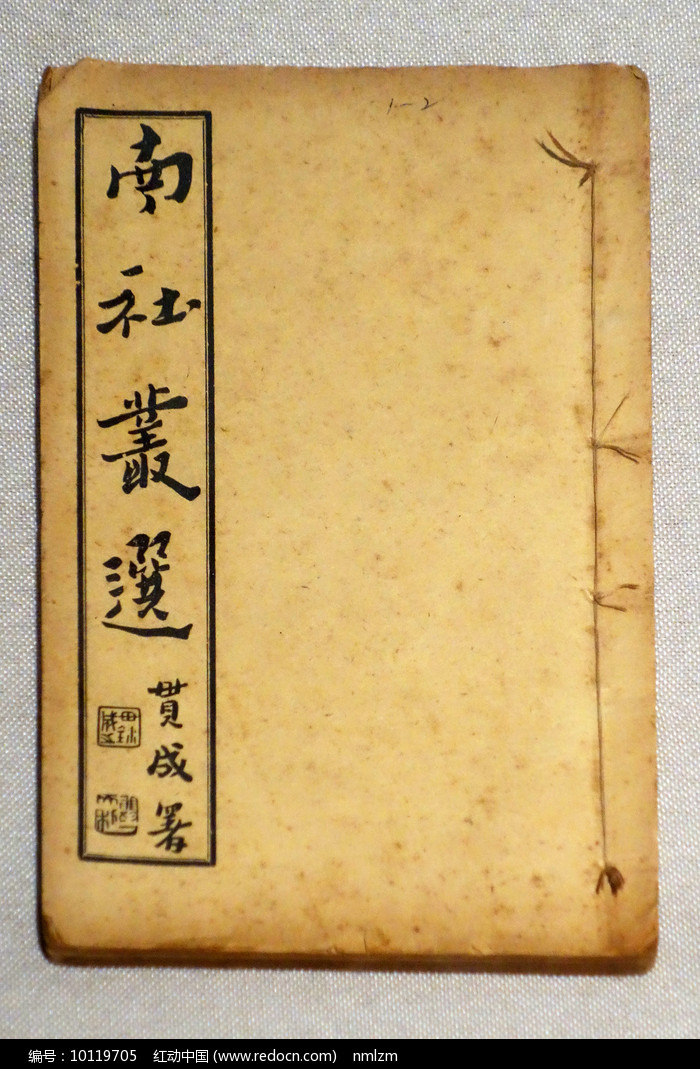 1-2
南社叢選
貫成署
编号：10119705 红动中国 (www.redocn.com) nmlzm